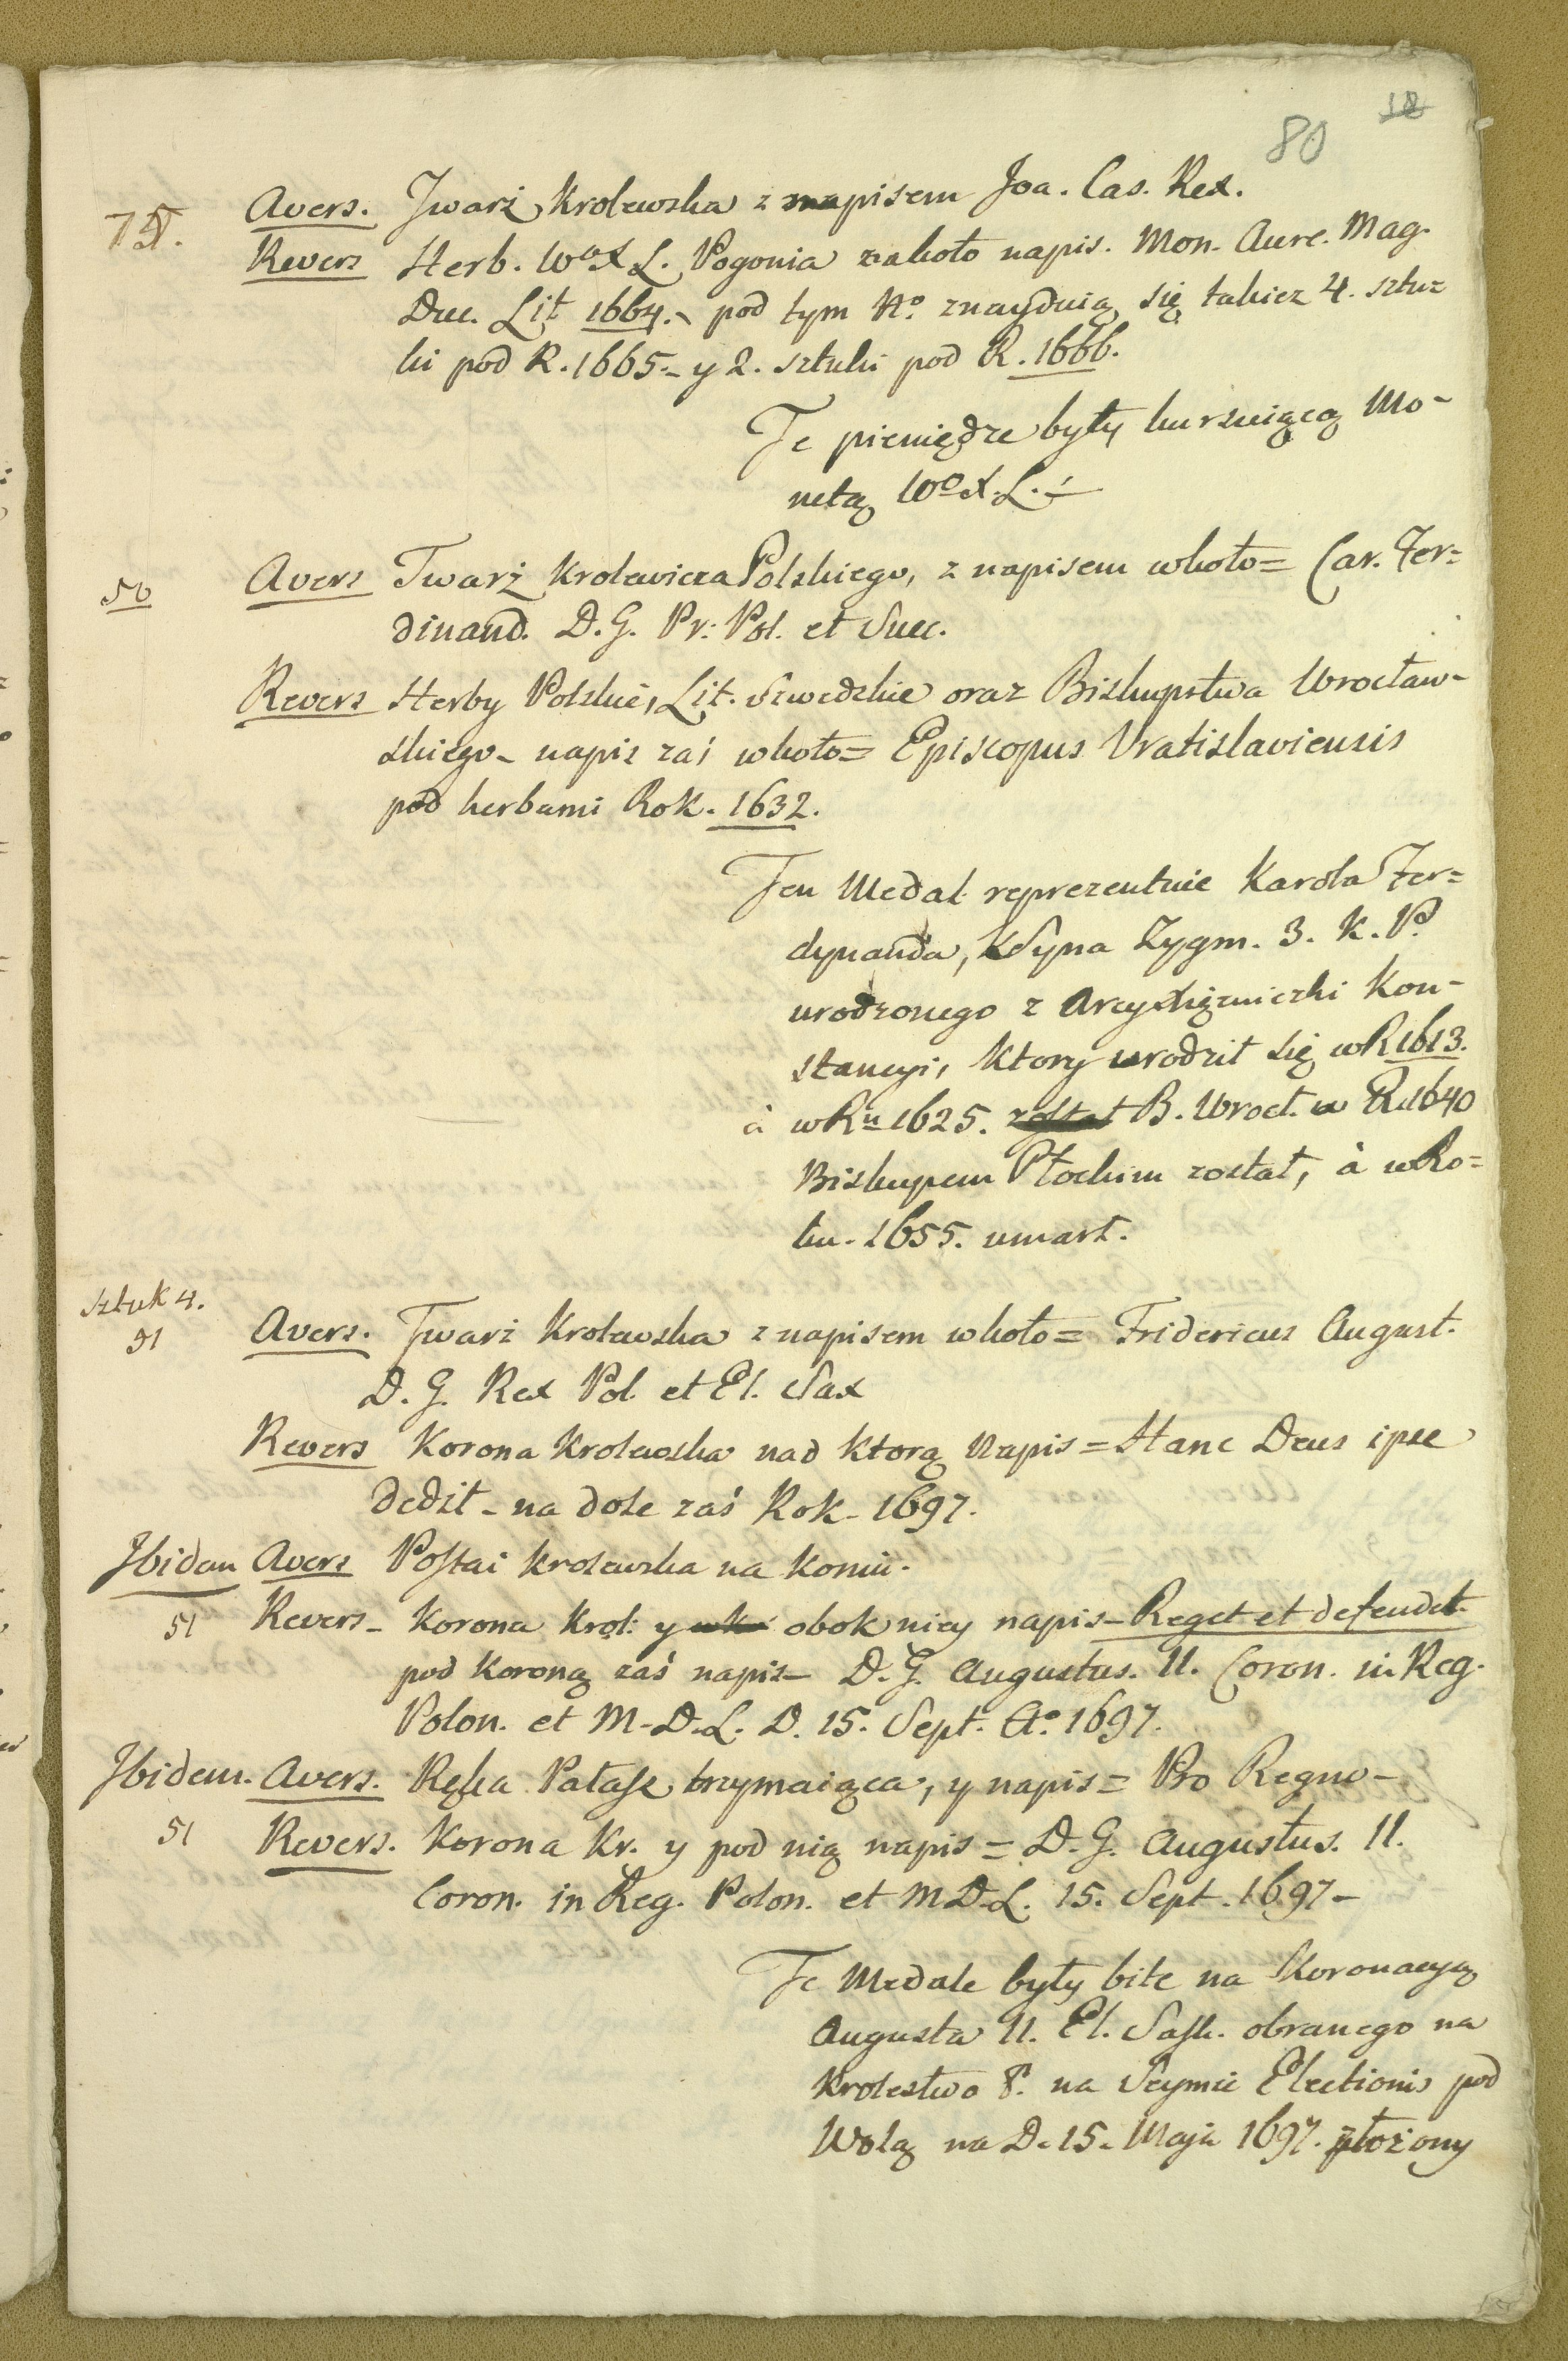 80 18
75. Avers. Twarz Krolewska z napisem Joa. Cas. Rex.
Revers Herb. Wo X L. Pogonia nakoło napis. Mon. Aure. Mag.
Duc. Lit 1664. pod tym No. znayduią się takiez 4. sztu=
ki pod R. 1665.- y 2. sztuki pod R. 1666.
Te pieniędze były kursuiącą Mo-
netą Wo X. L.
50 Avers Twarz Krolewicza Polskiego, z napisem wkoło= Car. Fer=
dinand. D. G. Pr: Pol. et Suec.
Revers Herby Polskie, Lit. Szwedzkie oraz Biskupstwa Wrocław-
skiego - napis zaś wkoło= Episcopus Vratislaviensis
pod herbami Rok. 1632.
Ten Medal reprezentuie Karola Fer=
dynanda, Syna Zygm. 3. K. P.
urodzonego z Arcyxiężniczki Kon-
stancyi, Ktory urodził się w R 1613.
à w Ru 1625. został B. Wrocł. w R. 1640
Biskupem Płockim został, à w Ro=
ku. 1655. umarł.
Sztuk 4.
51 Avers. Twarz Krolewska z napisem wkoło= Fridericus August.
D. G. Rex Pol. et El. Sax
Revers Korona Krolewska nad ktorą Napis= Hanc Deus ipse
dedit - na dole zaś Rok- 1697.
Ibidem Avers Postać Krolewska na Koniu.
51 Revers- Korona Krol: y obok niey napis- Reget et defendet.
pod Koroną zaś napis- D. G. Augustus. II. Coron. in Reg.
Polon. et M. D. L. D. 15. Sept. Ao. 1697.
Ibidem. Avers. Ręka Pałasz trzymaiąca, y napis= Pro Regno-
51 Revers. Korona Kr. y pod nią napis= D. G. Augustus. II.
Coron. in Reg. Polon. et M D. L. 15. Sept. 1697-
Te Medale były bite na Koronacyą
Augusta II. El. Sask. obranego na
Krolestwo P. na Seymie Electionis pod
Wolą na D. 15. Maja 1697. złożony